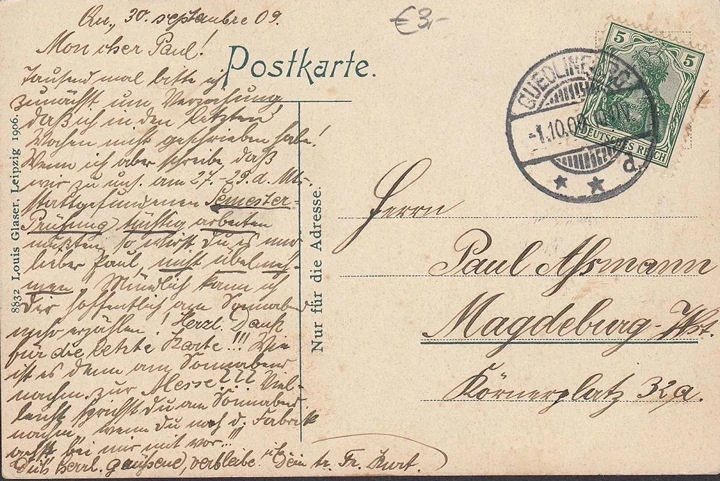 Qu., 30. septembre 09.
Mon cher Paul!
Tausend mal bitte ich
zunächst um Verzeihung,
daß ich in den letzten
Wochen nicht geschrieben habe!
Wenn ich aber schreibe daß
wir zu uns. am 27.-29. d. Mts.
stattgefundenen Semester-
Prüfung tüchtig arbeiten
mußten, so wirst Du es mir
lieber Paul, nicht übelneh-
men. Mündlich kann ich
Dir hoffentlich am Sonnabend
mehr erzählen. Herzl. Dank
für die letzte Karte!!! Wie
ist es denn am Sonnabend
nachm. zur Messe??? Viel-
leicht sprichst Du am Sonnabend
nachm., wenn Du nach d. Fabrik
bei mir mit vor...!!!
Dich herzl. grüßend, verbleibe ich Dein tr. Fr. Kurt.
€3,-
Postkarte.
5 5
DEUTSCHES REICH
QUEDLINBURG
-1.10.09
d
8832 Louis Glaser, Leipzig 1906.
Nur für die Adresse.
Herrn
Paul Assmann
Magdeburg-Wst.
Körnerplatz 32a.